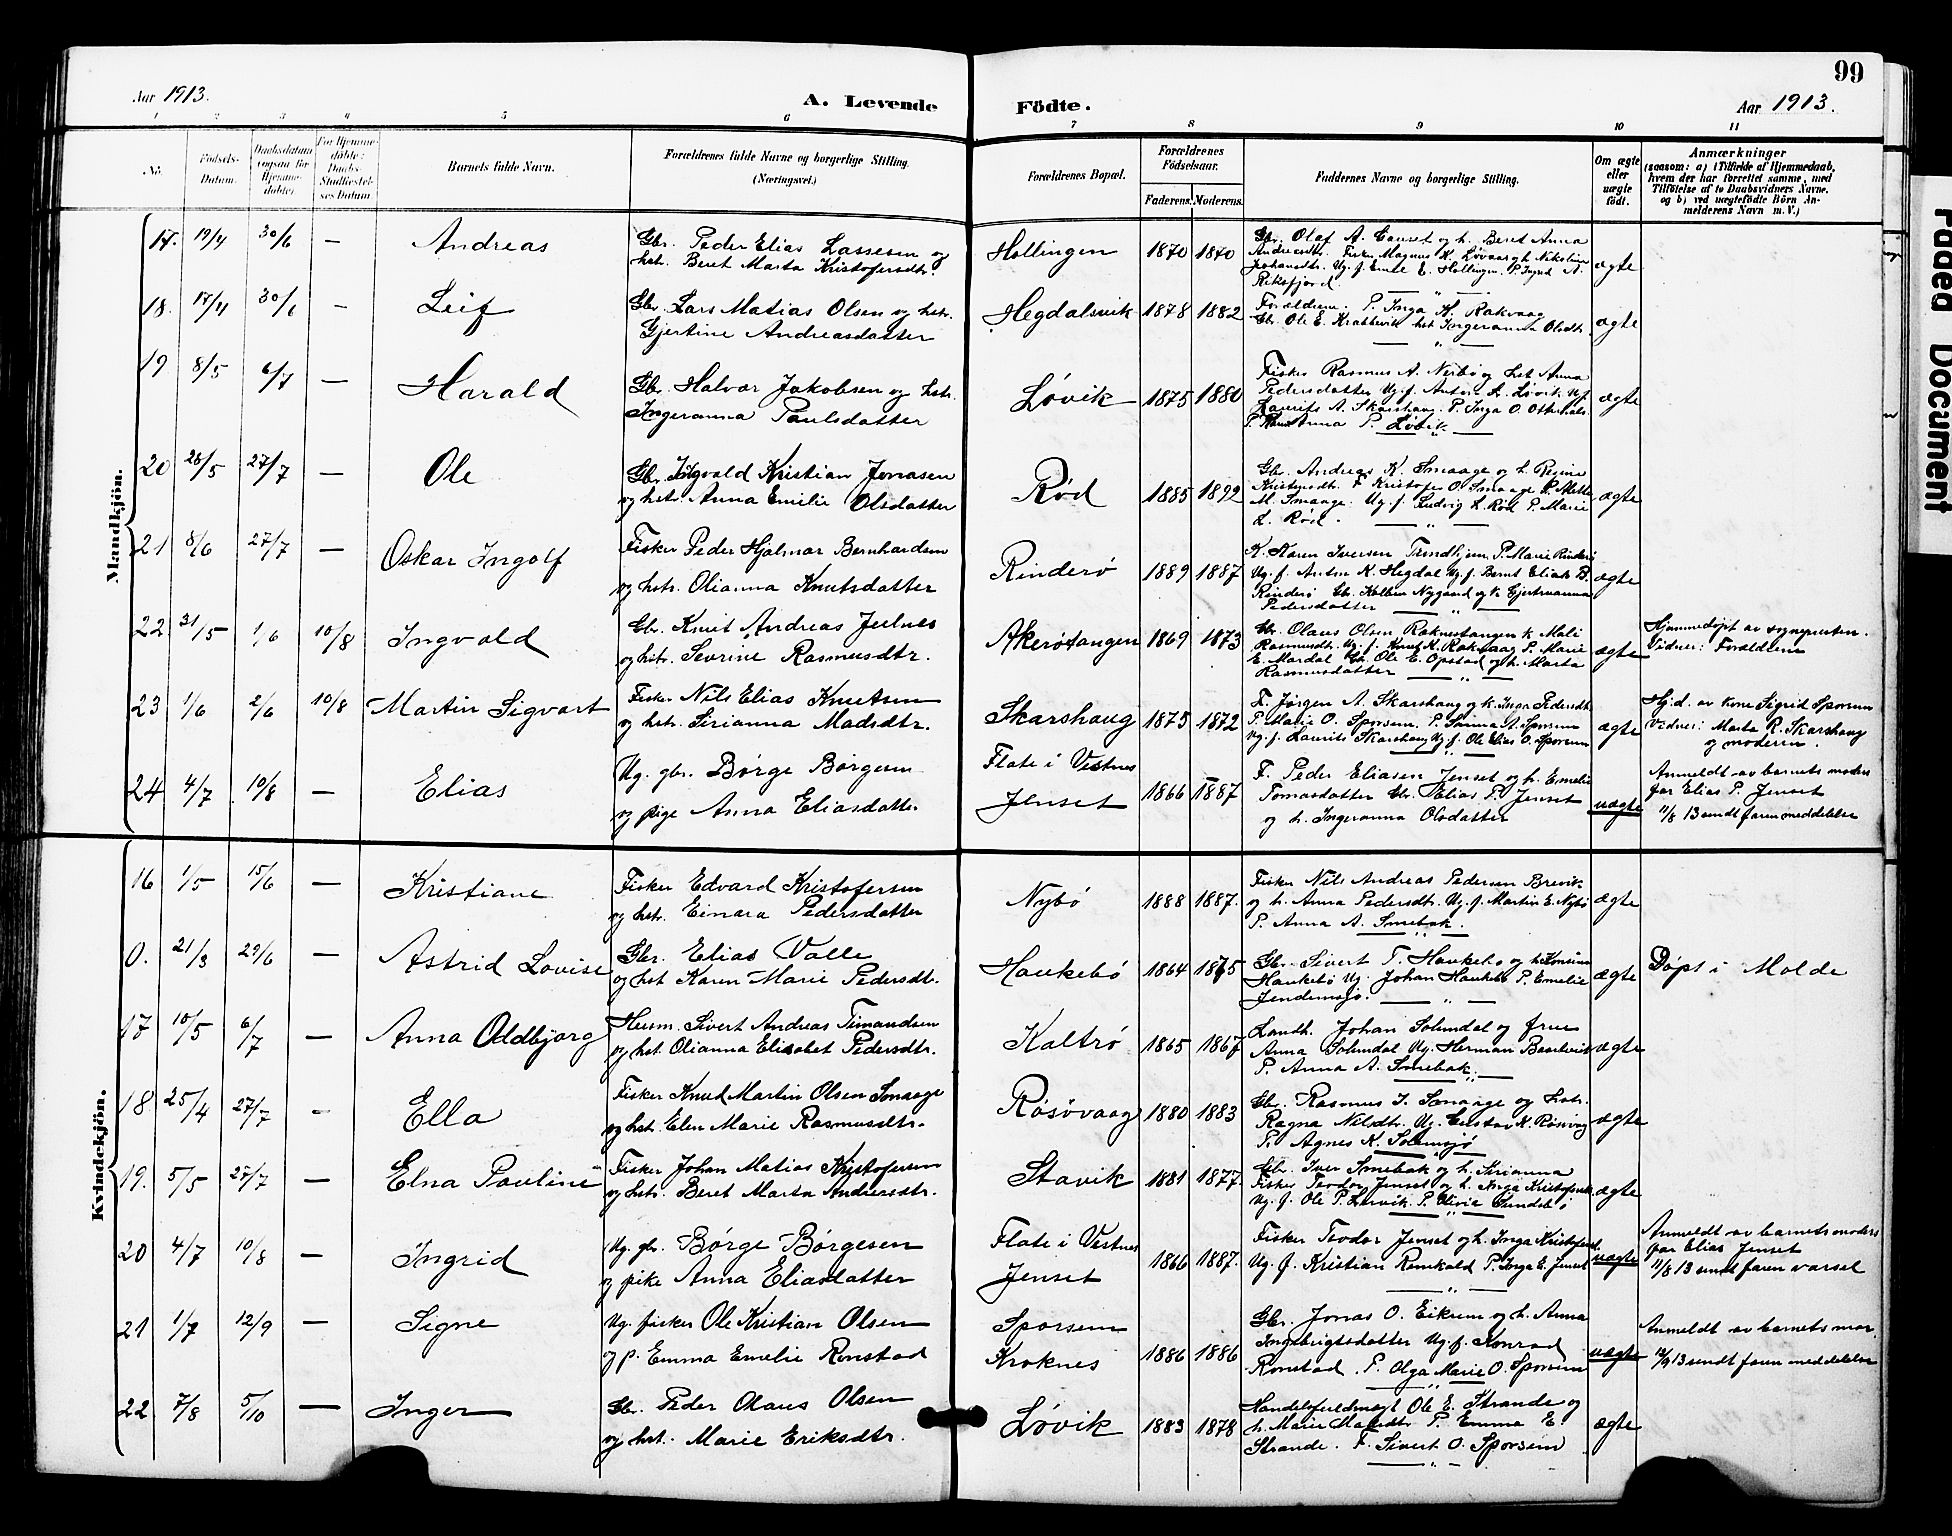 99
Aar 1913.
A. Levende
Födte.
Aar 1913.
1 2 3 4 5 6 7 8 9 10 11
No.
Födsels-
Datum.
Daabsdatum
(ogsaa for
Hjemme-
döbte.)
For Hjemme-
döbte:
Daabs-
Stadfæstel-
ses Datum.
Barnets fulde Navn.
Forældrenes fulde Navne og borgerlige Stilling.
(Næringsvei.)
Forældrenes Bopæl.
Forældrenes
Födselsaar.
Faderens. Moderens.
Faddernes Navne og borgerlige Stilling.
Om ægte
eller
uægte
födt.
Anmærkninger
(saasom: a) i Tilfælde af Hjemmedaab,
hvem der har forrettet samme, med
Tilföielse af to Daabsvidners Navne.
og b) ved uægtefödte Börn An-
melderens Navn m. V.)
Mandkjön.
17. 19/4 30/6 — Andreas
Gbr. Peder Elias Lassesen og
hstr. Beret Marta Kristofersdtr.
Hollingen 1870 1870
Gbr. Olaf A. Causet og h. Beret Anna
Andersdtr. Fisker Magnus K. Løvaas og h. Nikoline
Johansdtr. Ug. f. Emil E. Hollingen. P. Inga A.
Riksfjord.
ægte
18. 17/4 30/6 — Leif
Gbr. Lars Matias Olsen og hstr.
Gjertine Andreasdatter
Hegdalsvik 1878 1882
Forældrene. P. Inga K. Rakvaag
Gbr. Ole E. Krabbevik hst Ingeranna Olsdtr.
ægte
19 8/5 6/7 — Harald
Gbr. Halvor Jakobsen og hstr.
Ingeranna Paulsdatter
Løvik 1875 1880
Fisker Rasmus A. Nerbø og hst Anna
Pedersdatter Ug. f. Anton L. Løvik Ug f
Laurits A. Skarshaug. P. Inga O.
P. Anna P. Løvik
ægte
20 28/5 27/7 — Ole
Gbr. Ingvald Kristian Jonasen
og hstr. Anna Emilie Olsdatter
Rød 1885 1892
Gbr. Andreas K. Smaage og h. Regine
F Kristofer O. Smaage P. Mette
M. Smaage. Ug. f. Ludvig L. Rød P. Marie
L. Rød.
ægte
21 8/6 27/7 — Oskar Ingolf
Fisker Peder Hjalmar Bernhardsen
og hstr. Olianna Knutsdatter
Rinderø 1889 1887
K. Karen Iversen Trondhjem, P. Marie Rinderø
Ug. f. Anton K. Hegdal Ug. f. Bernt Eliak B.
Rinderø Gbr. Kolbein Nygaard og k. Gjertruanna
Pedersdatter
ægte
22 31/5 1/6 10/8 Ingvald
Gbr. Knut Andreas Julnes
og hstr. Sevrine Rasmusdtr.
Akerøtangen 1869 1873
Gbr. Olaus Olsen Raknestangen k. Mali
Rasmusdtr. Ug. f. Knut K. Rakvaag P. Marie
E. Mardal Gbr. Ole E. Opstad og h. Marta
Rasmusdatter
ægte
Hjemmedøpt av sognepresten.
Vidner: Forældrene
23 1/6 2/6 10/8 Martin Sigvart
Fisker Nils Elias Knutsen
og hstr. Sirianna Madsdtr.
Skarshaug 1875 1872
F. Jørgen A. Skarshaug og k. Inga Pedersdt.
P. Marie O. Sporsem. P. Sanna A. Sporsem
Ug. f. Laurits Skarshaug Ug. f. Ole Elias O. Sporsem
ægte
Hjd. av kone Sigrid Sporsem
Vidner: Marta R. Skarshaug
og moderen.
24 4/7 10/8 — Elias
Ug. gbr. Børge Børgesen
og pige Anna Eliasdatter
Flate i Vestnes
Jenset 1866 1887
F. Peder Eliasen Jenset og h. Emelie
Tomasdatter Gbr. Elias P. Jenset
og h. Ingeranna Olsdatter
uægte
Anmeldt av barnets moders
far Elias P. Jenset
11/8 13 sendt faren meddelelse
Kvindekjön.
16 1/5 15/6 — Kristiane
Fisker Edvard Kristofersen
og hstr. Einara Pedersdatter
Nybø 1888 1887.
Fisker Nils Andreas Pedersen Brevik
og h. Anna Pedersdtr. Ug. f. Martin E. Nybø
P. Anna A. Smebak.
ægte
0. 21/3 29/6 — Astrid Lovise
Gbr. Elias Valle
og hst Karen Marie Pedersdt.
Haukebø 1864 1875
Gbr. Sivert T. Haukebø og h. Konsine
Haukebø Ug. Johan Haukebø P. Emelie
Jendemsjø.
ægte
Døpt i Molde
17 10/5 6/7 — Anna Oddbjørg
Husm. Sivert Andreas Timandsen
og hst. Olianna Elisabet Pedersdtr.
Kaltrø 1865 1867
Landh. Johan Solemdal og frue
Anna Solemdal Ug. Herman
P. Anna A. Smebak.
ægte
18 25/4 27/7 — Ella
Fisker Knud Martin Olsen Smaage
og hstr. Elen Marie Rasmusdtr.
Røsøvaag 1880 1883
Gbr. Rasmus I. Smaage og hstr.
Ragna Nilsdtr. Ug. Gustav K. Røsøvåg
P. Agnes K. Solemsjø
ægte
19. 5/5 27/7 — Elna Pauline
Fisker Johan Matias Kristofersen
og hstr. Beret Marta Andersdtr.
Stavik 1881 1877.
Gbr. Iver Smebak og h. Sirianna
Fisker Teodor Jenset og h. Inga Kristofersdt.
Ug. f. Ole P. Lervik. P. Olivia Sundsbø
ægte
20 4/7 10/8 — Ingrid
Ug. gbr. Børge Børgesen
og pike Anna Eliasdatter
Flate i Vestnes
Jenset 1866 1887.
Fisker Teodor Jenset og h. Inga Kristofersdt.
Ug. f. Kristian Remkald P. Inga E. Jenset
uægte
Anmeldt av barnets moders
far Elias Jenset
11/8 13 sendt faren varsel
21 1/7 12/9 — Signe
Ug. fisker Ole Kristian Olsen
og p. Emma Emelie Ronstad
Sporsem
Kroknes 1886 1886
Gbr. Jonas O. Eikrem og h. Anna
Ingebrigtsdatter Ug. f. Konrad
Ronstad. P. Olga Marie O. Sporsem
uægte
Anmeldt av barnets mor.
12/9 13 sendt faren meddelelse
22 7/8 5/10 — Inger
Gbr. Peder Olaus Olsen
og hst. Marie Eriksdtr.
Løvik 1883 1878
Handelsfuldmægt Ole E. Strande og
h. Marie P. Emma E
Strande. F. Sivert O. Sporsem
ægte
Faded Document